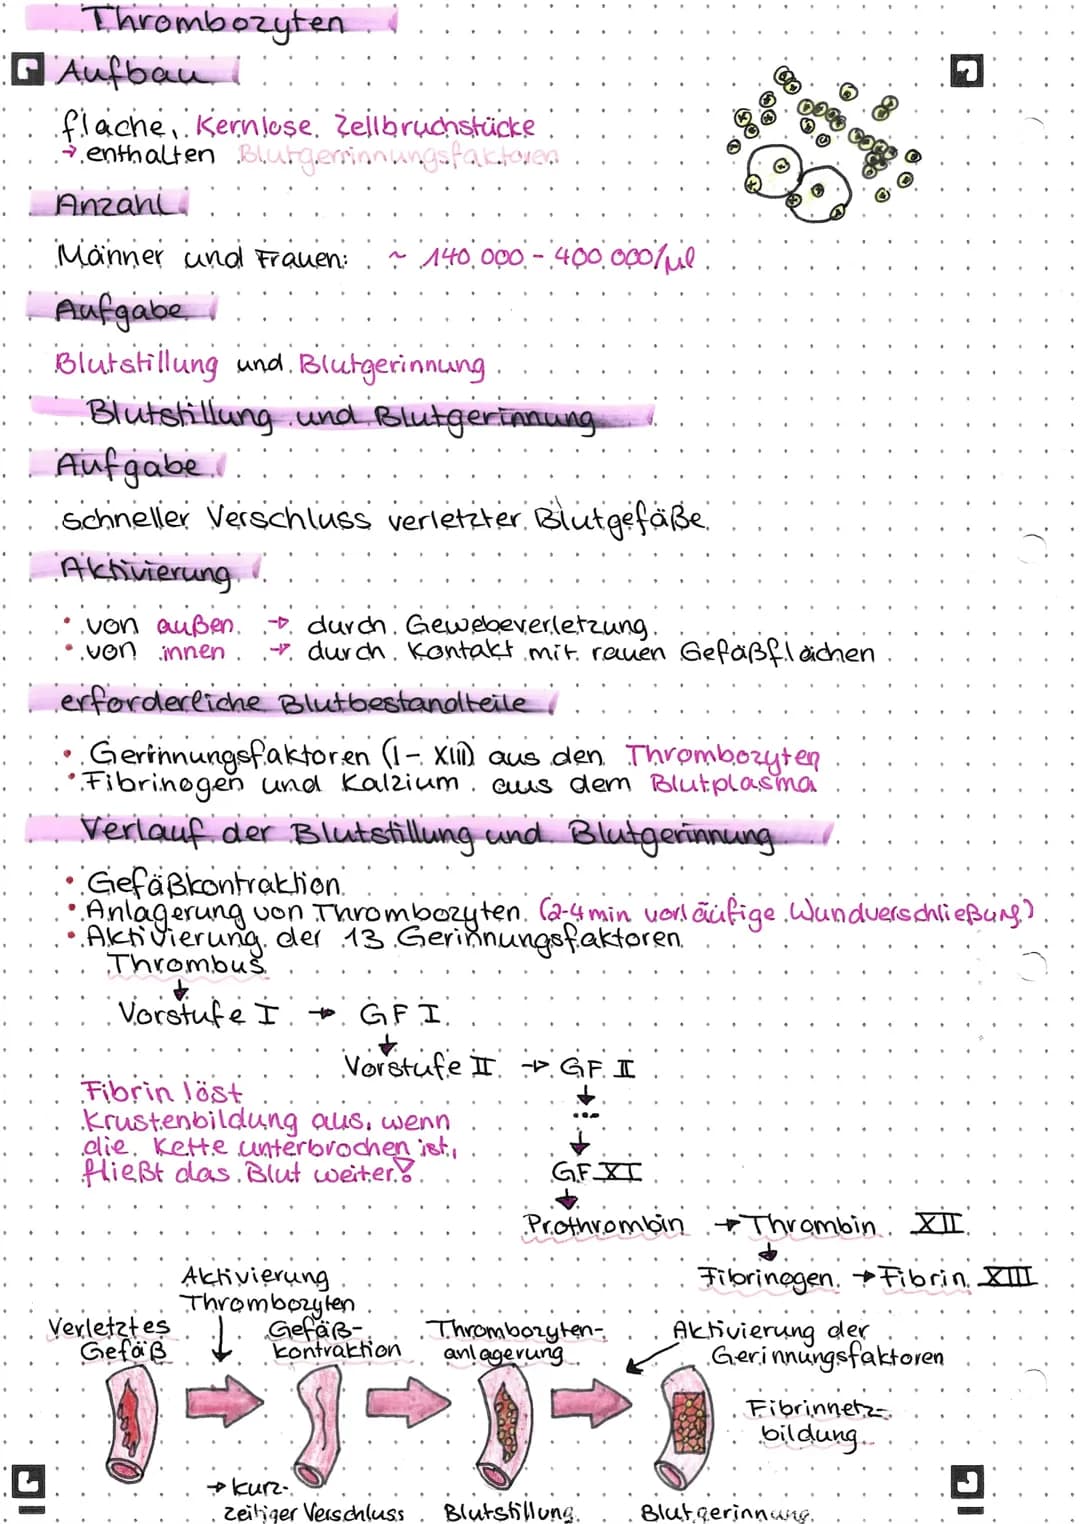 Thrombozyten
Aufbau
flache, Kernlose Zellbruchstücke
→ enthalten Blutgerinnungsfaktoren
Anzahl
Männer und Frauen: ~ 140.000 - 400.000/µl
Aufgabe
Blutstillung und Blutgerinnung
Blutstillung und Blutgerinnung
Aufgabe
schneller Verschluss verletzter Blutgefäße
Aktivierung
• von außen → durch Gewebeverletzung
• von innen → durch Kontakt mit rauen Gefäßflächen
erforderliche Blutbestandteile
• Gerinnungsfaktoren (I - XIII) aus den Thrombozyten
• Fibrinogen und Kalzium aus dem Blutplasma
Verlauf der Blutstillung und Blutgerinnung
• Gefäßkontraktion
• Anlagerung von Thrombozyten (2-4 min vorläufige Wundverschließung)
• Aktivierung der 13 Gerinnungsfaktoren
Thrombus
↓
Vorstufe I → GF I
↓
Vorstufe II → GF II
↓
...
↓
GF XI
↓
Prothrombin → Thrombin XII
↓
Fibrinogen → Fibrin XIII
Fibrin löst
Krustenbildung aus, wenn
die Kette unterbrochen ist,
fließt das Blut weiter!
Verletztes
Gefäß
Aktivierung
Thrombozyten
Gefäß-
kontraktion
Thrombozyten-
anlagerung
Aktivierung der
Gerinnungsfaktoren
Fibrinnetz-
bildung
→ kurz-
zeitiger Verschluss
Blutstillung
Blutgerinnung